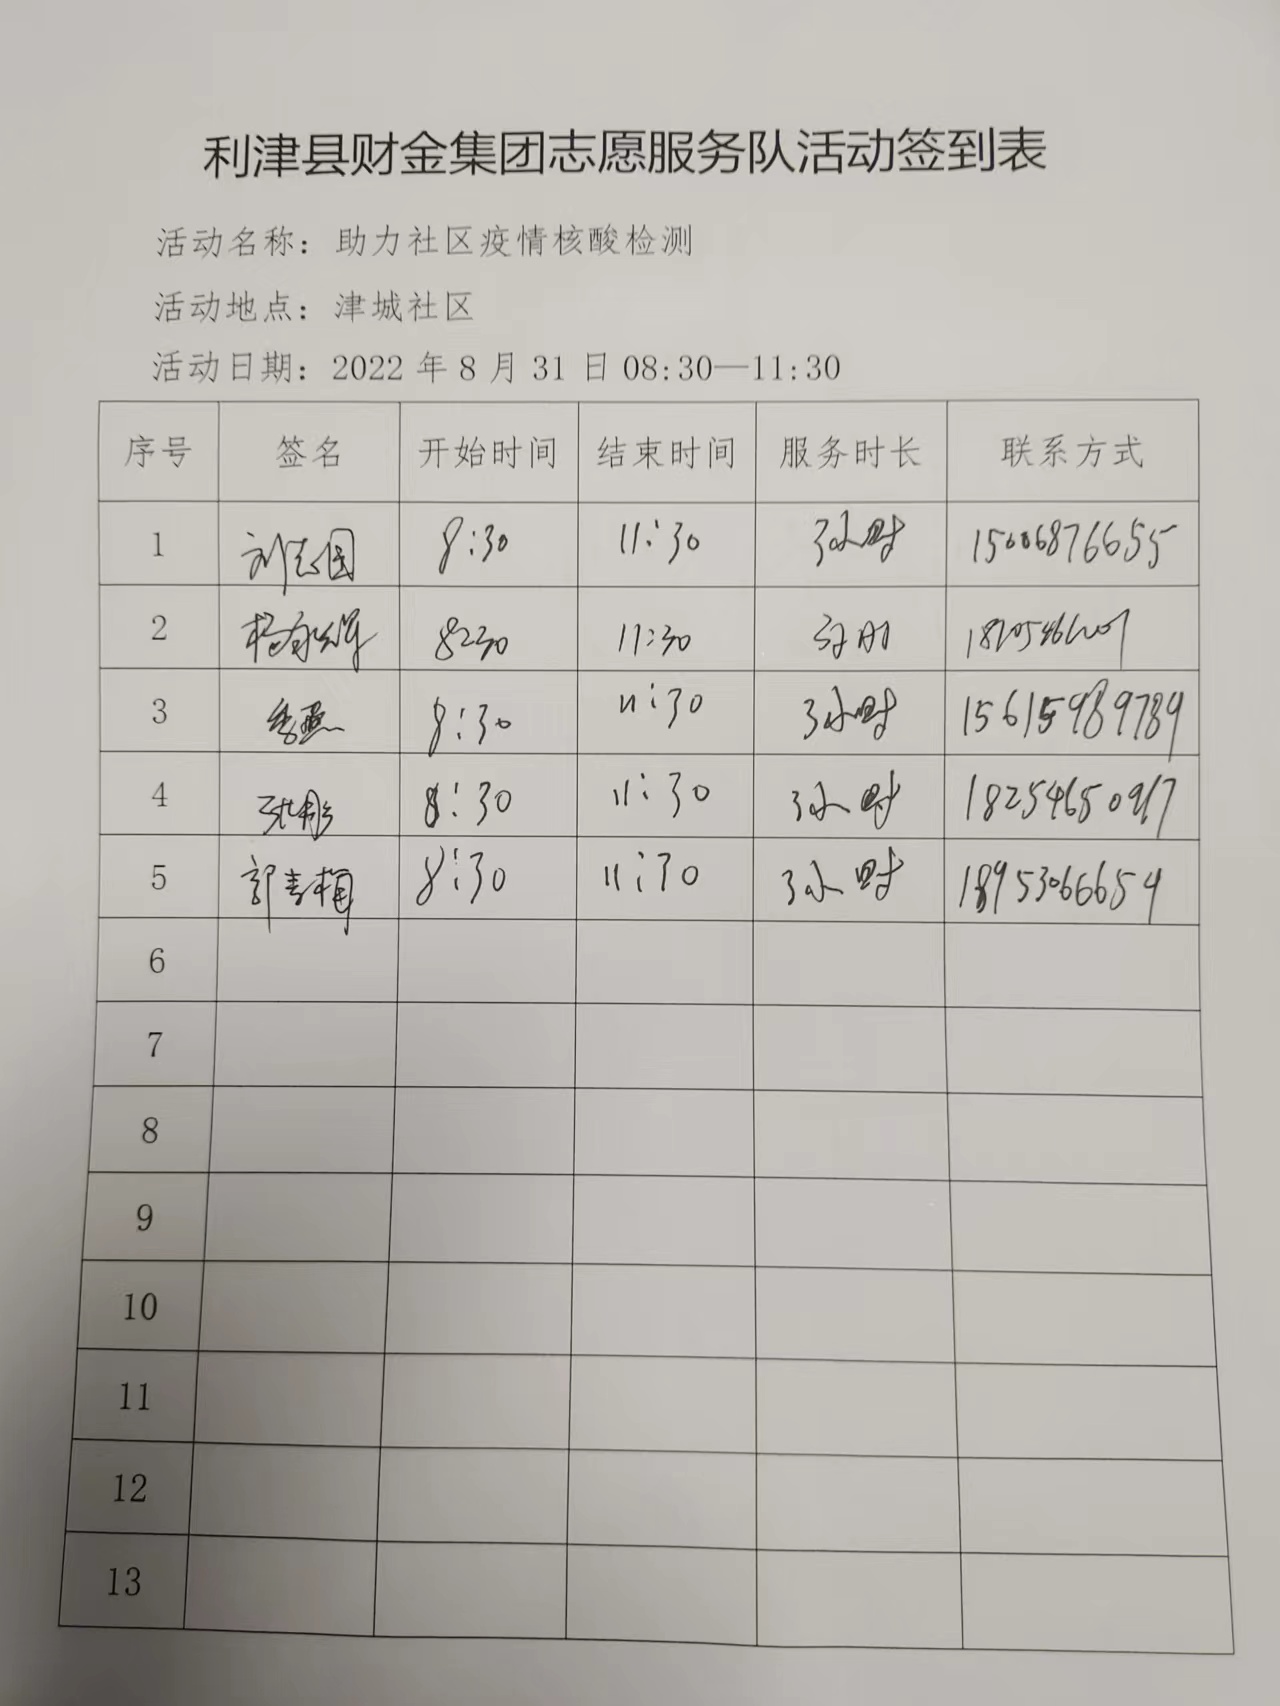 利津县财金集团志愿服务队活动签到表
活动名称：助力社区疫情核酸检测
活动地点：津城社区
活动日期：2022 年 8 月 31 日 08:30—11:30
序号 签名 开始时间 结束时间 服务时长 联系方式
1 刘志国 8:30 11:30 3小时 15606876655
2 8:30 11:30 3小时
3 8:30 11:30 3小时 15615989789
4 张彤 8:30 11:30 3小时 18254650917
5 郭青梅 8:30 11:30 3小时 18953066654
6
7
8
9
10
11
12
13